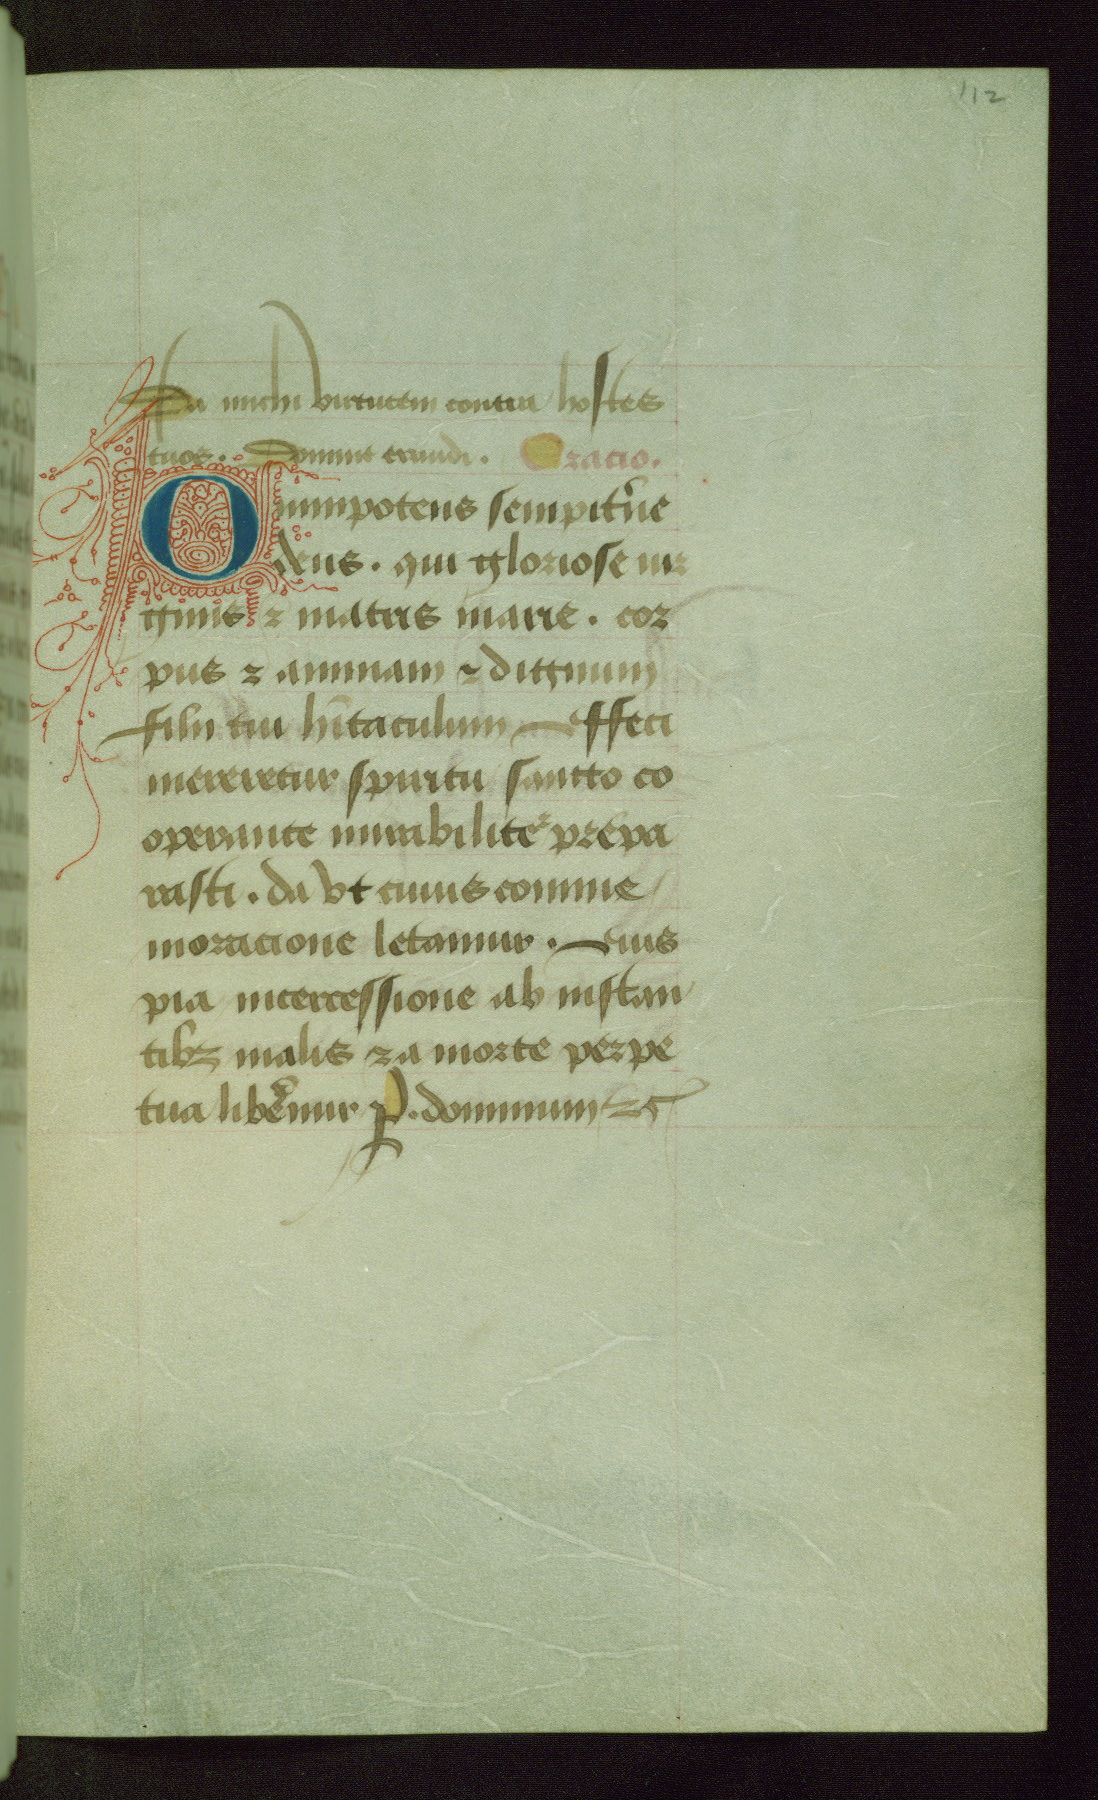 112
Da michi virtutem contra hostes
tuos. Domine exaudi. Oracio.
Omnipotens sempitne
deus. qui gloriose uir
ginis ⁊ matris marie. cor
pus ⁊ animam ⁊ dignum
filii tui hitaculum effeci
mereretur spiritu sancto co
operante mirabiliter prepa
rasti. da vt cuius comme
moracione letamur. eius
pia intercessione ab instan
tibꝫ malis ⁊ a morte perpe
tua libemur P. dominum ⁊c